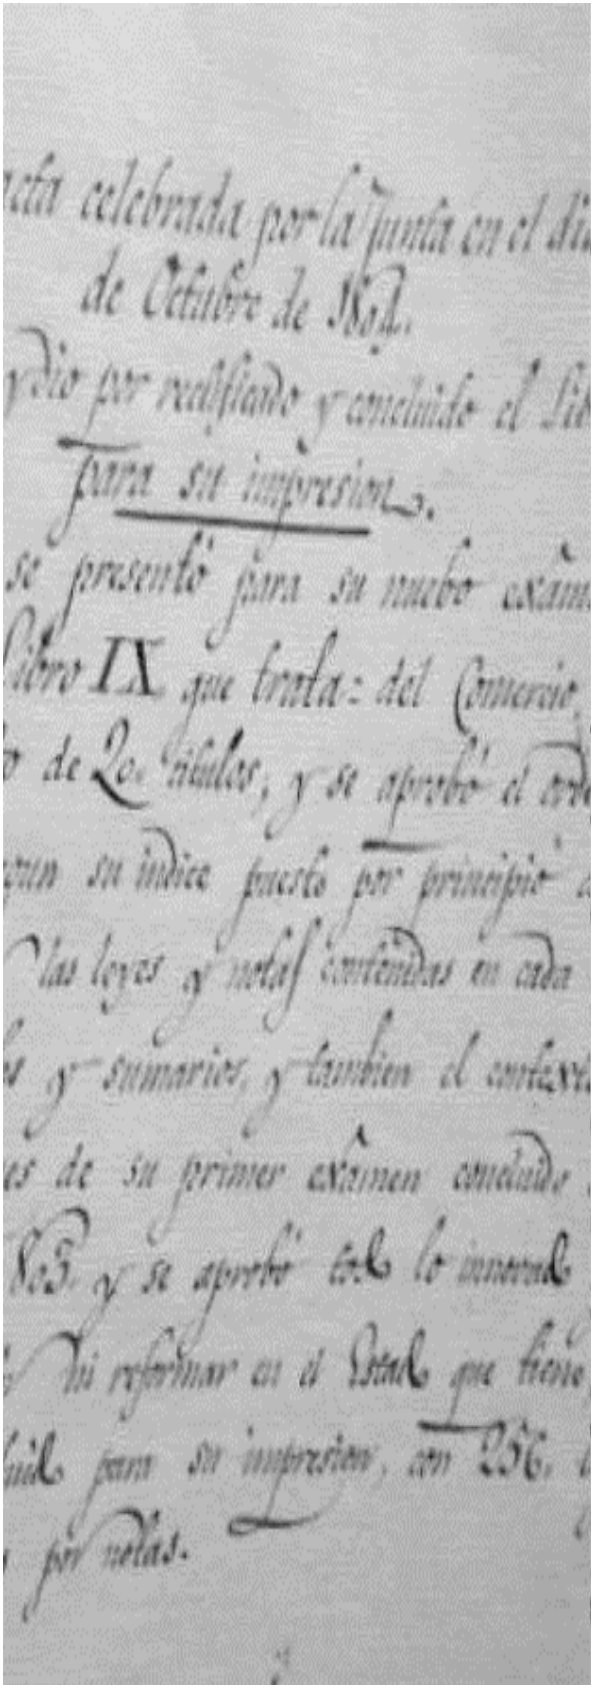 acta celebrada por la Junta en el dia
de Octubre de 1804.
y dio por rectificado y concluido el Lib
para su impresion.
se presentó para su nuebo exâm
Libro IX que trata: del Comercio,
to de 20. titulos; y se aprobó el orde
egun su indice puesto por principio
las leyes y notas contenidas en cada
os y sumarios, y tambien el contexto
es de su primer exâmen concluido
1803. y se aprobó todo lo innovado
ni reformar en el Estado que tiene,
luido para su impresion, con 256.
por notas.